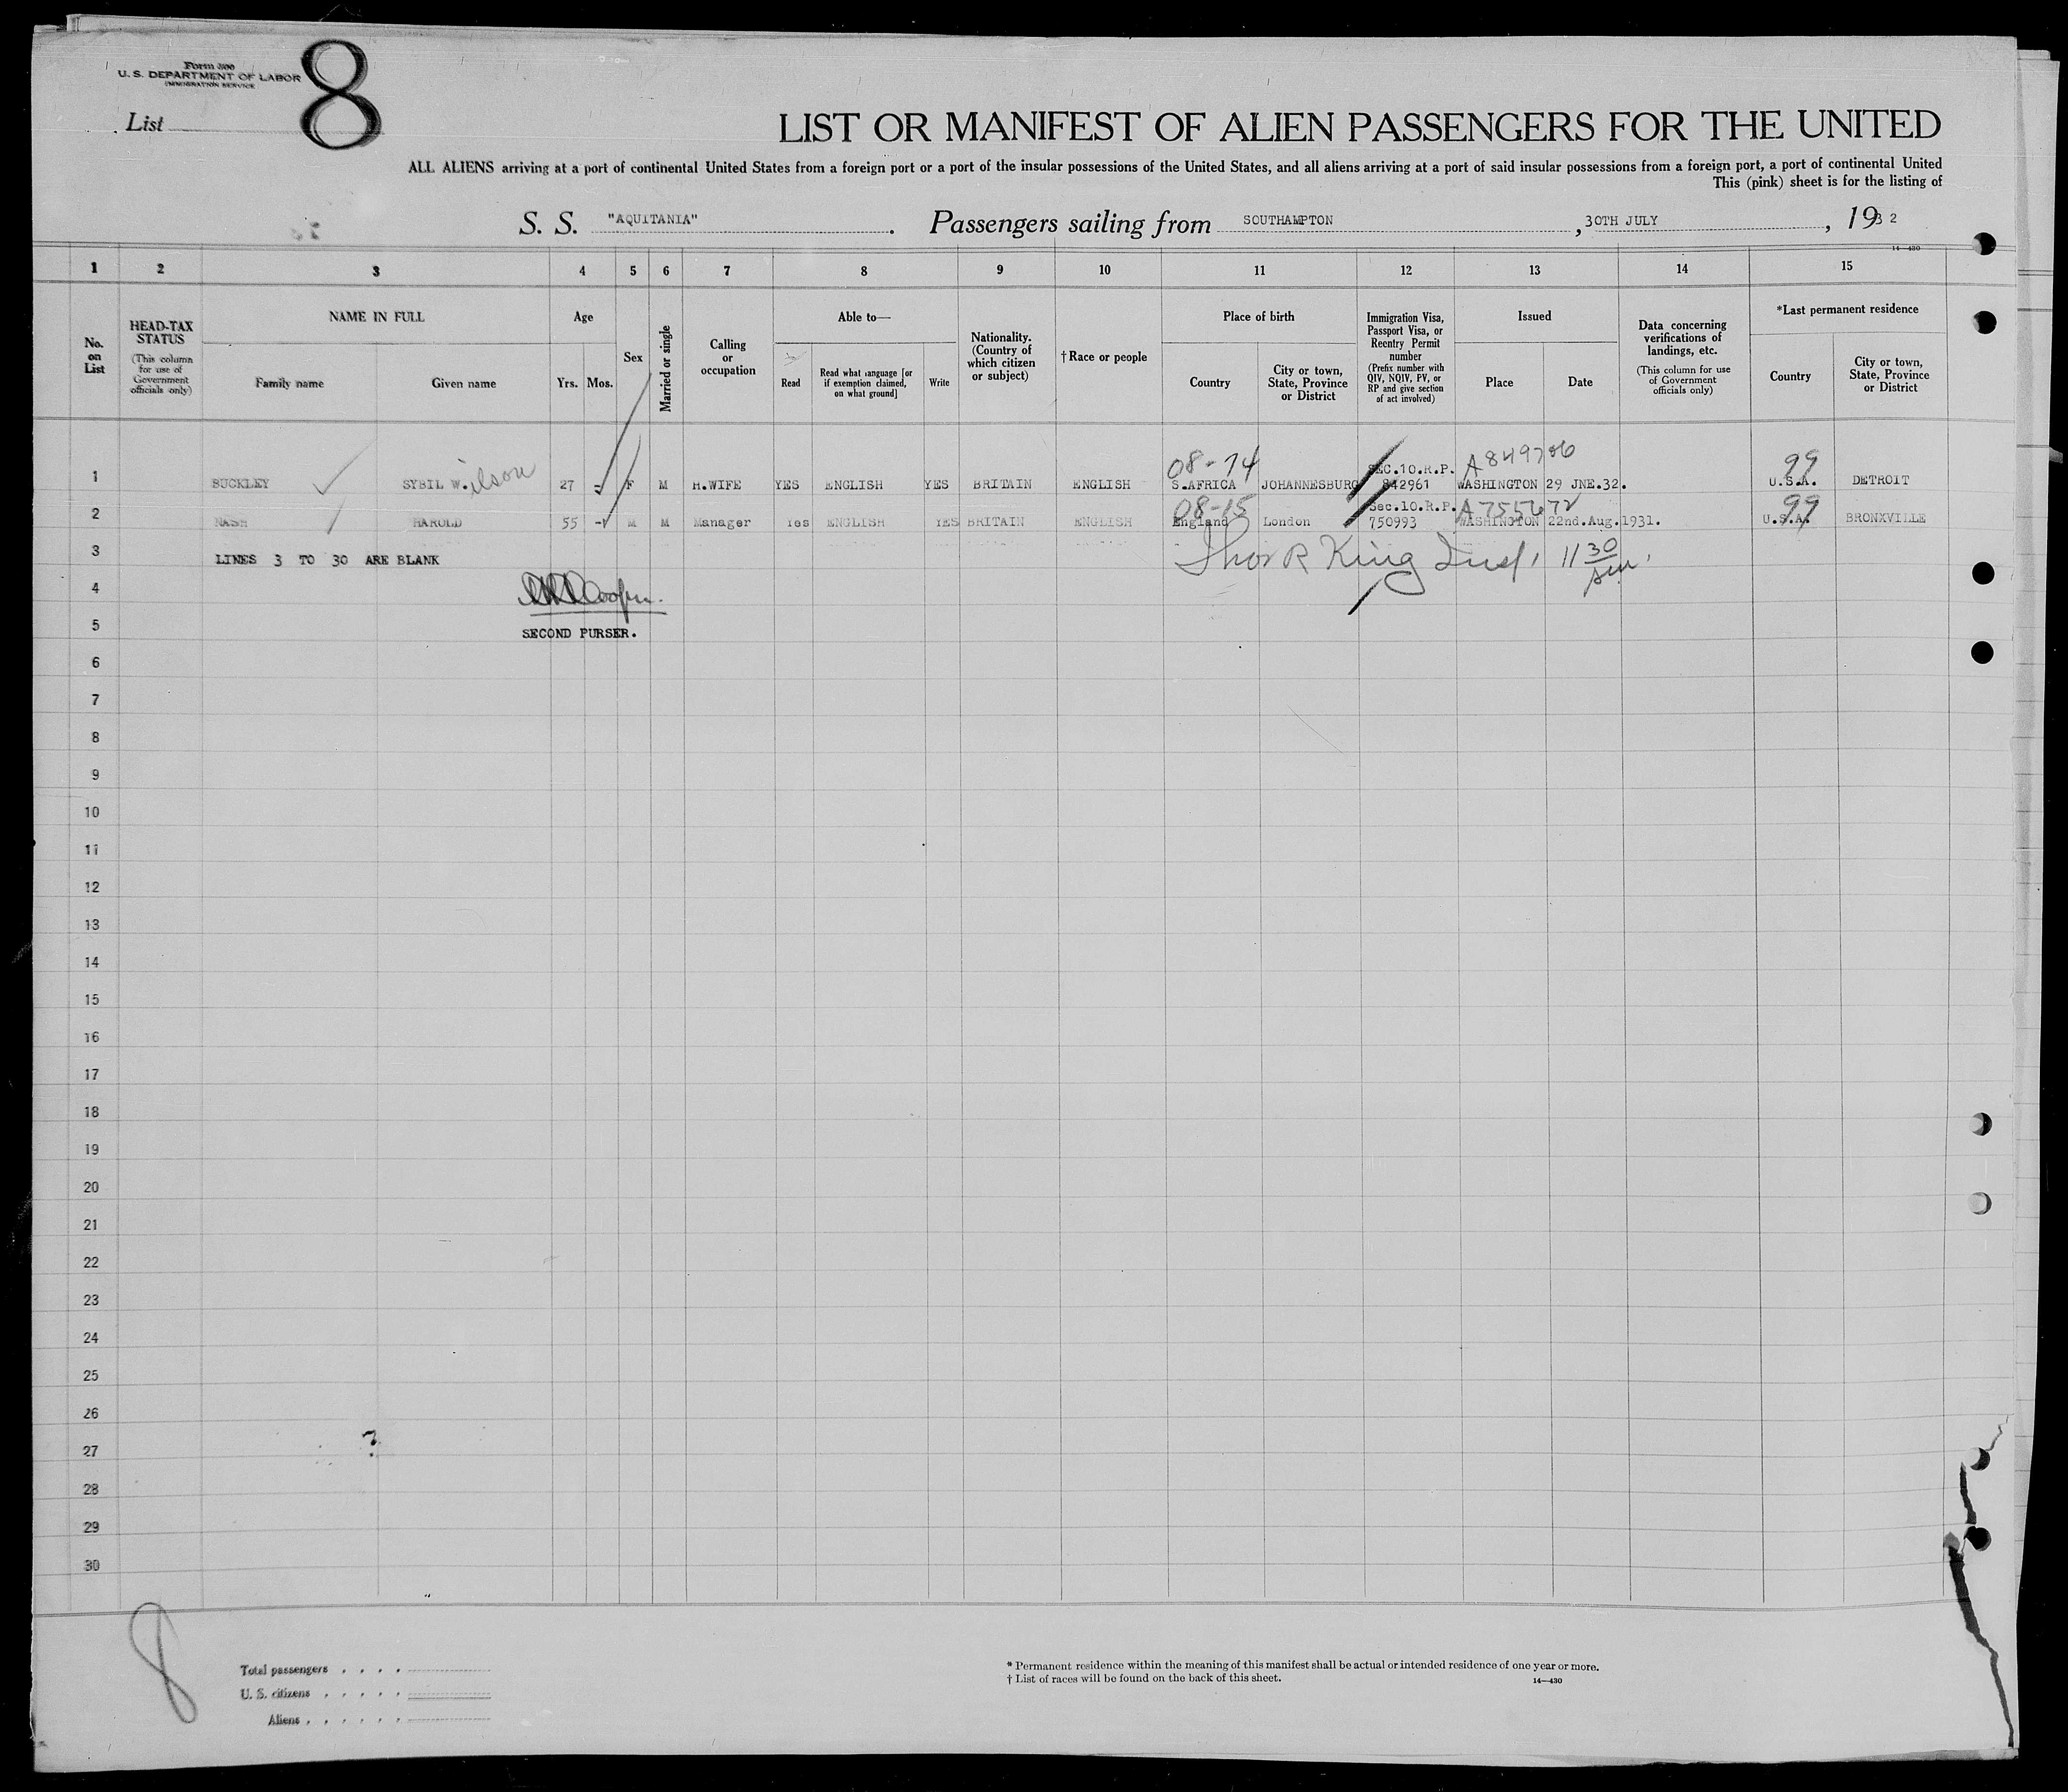 Form 500
U. S. DEPARTMENT OF LABOR
IMMIGRATION SERVICE
8
List
LIST OR MANIFEST OF ALIEN PASSENGERS FOR THE UNITED
ALL ALIENS arriving at a port of continental United States from a foreign port or a port of the insular possessions of the United States, and all aliens arriving at a port of said insular possessions from a foreign port, a port of continental United
This (pink) sheet is for the listing of
S. S. "AQUITANIA". Passengers sailing from SOUTHAMPTON, 30TH JULY, 1932
14—430
1 2 3 4 5 6 7 8 9 10 11 12 13 14 15
No. on List
HEAD-TAX STATUS
(This column for use of Government officials only)
NAME IN FULL
Family name Given name
Age
Yrs. Mos.
Sex
Married or single
Calling or occupation
Able to—
Read
Read what language [or if exemption claimed, on what ground]
Write
Nationality. (Country of which citizen or subject)
†Race or people
Place of birth
Country
City or town, State, Province or District
Immigration Visa, Passport Visa, or Reentry Permit number
(Prefix number with QIV, NQIV, PV, or RP and give section of act involved)
Issued
Place Date
Data concerning verifications of landings, etc.
(This column for use of Government officials only)
*Last permanent residence
Country
City or town, State, Province or District
08-74 SEC.10.R.P. A849786 99
1 BUCKLEY SYBIL W.ilson 27 - F M H.WIFE YES ENGLISH YES BRITAIN ENGLISH S.AFRICA JOHANNESBURG 842961 WASHINGTON 29 JNE.32. U.S.A. DETROIT
08-15 Sec.10.R.P. A755672 99
2 NASH HAROLD 55 - M M Manager Yes ENGLISH YES BRITAIN ENGLISH England London 750993 WASHINGTON 22nd.Aug.1931. U.S.A. BRONXVILLE
3 LINES 3 TO 30 ARE BLANK
Thos R King Insp. 11 30 AM.
4
5 SECOND PURSER.
6
7
8
9
10
11
12
13
14
15
16
17
18
19
20
21
22
23
24
25
26
27
28
29
30
8
Total passengers
U. S. citizens
Aliens
* Permanent residence within the meaning of this manifest shall be actual or intended residence of one year or more.
† List of races will be found on the back of this sheet.
14—430